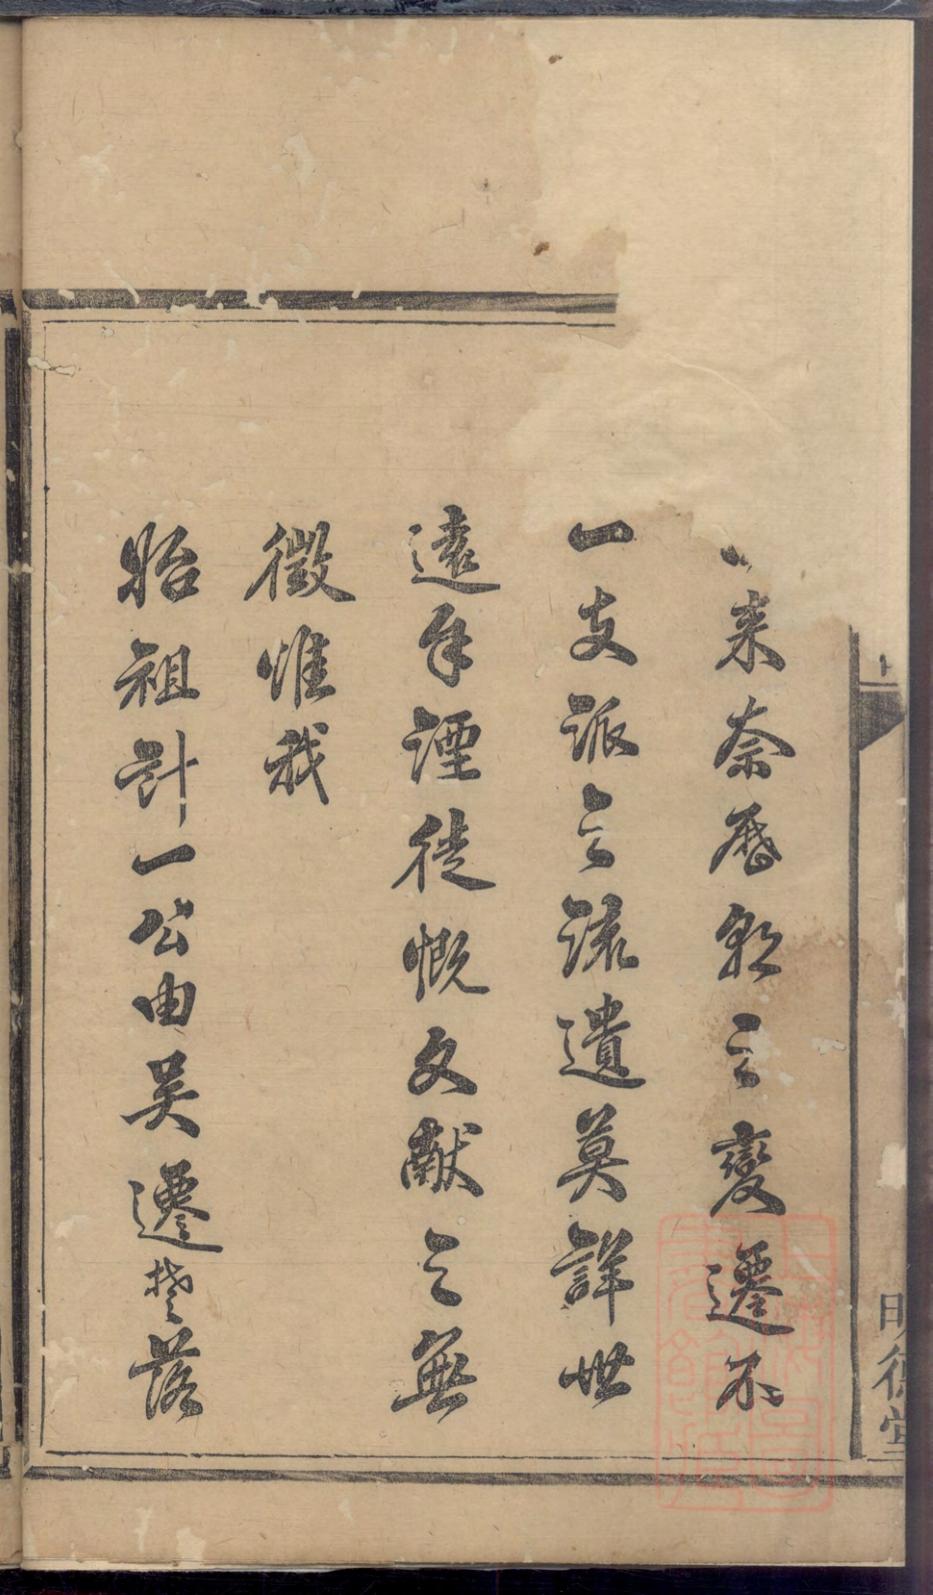 来奈歷朝之變遷不
一支派之流遺莫詳世
遠年湮徒慨文献之無
徵惟我
貽祖計一公由吴遷楚落
明德堂